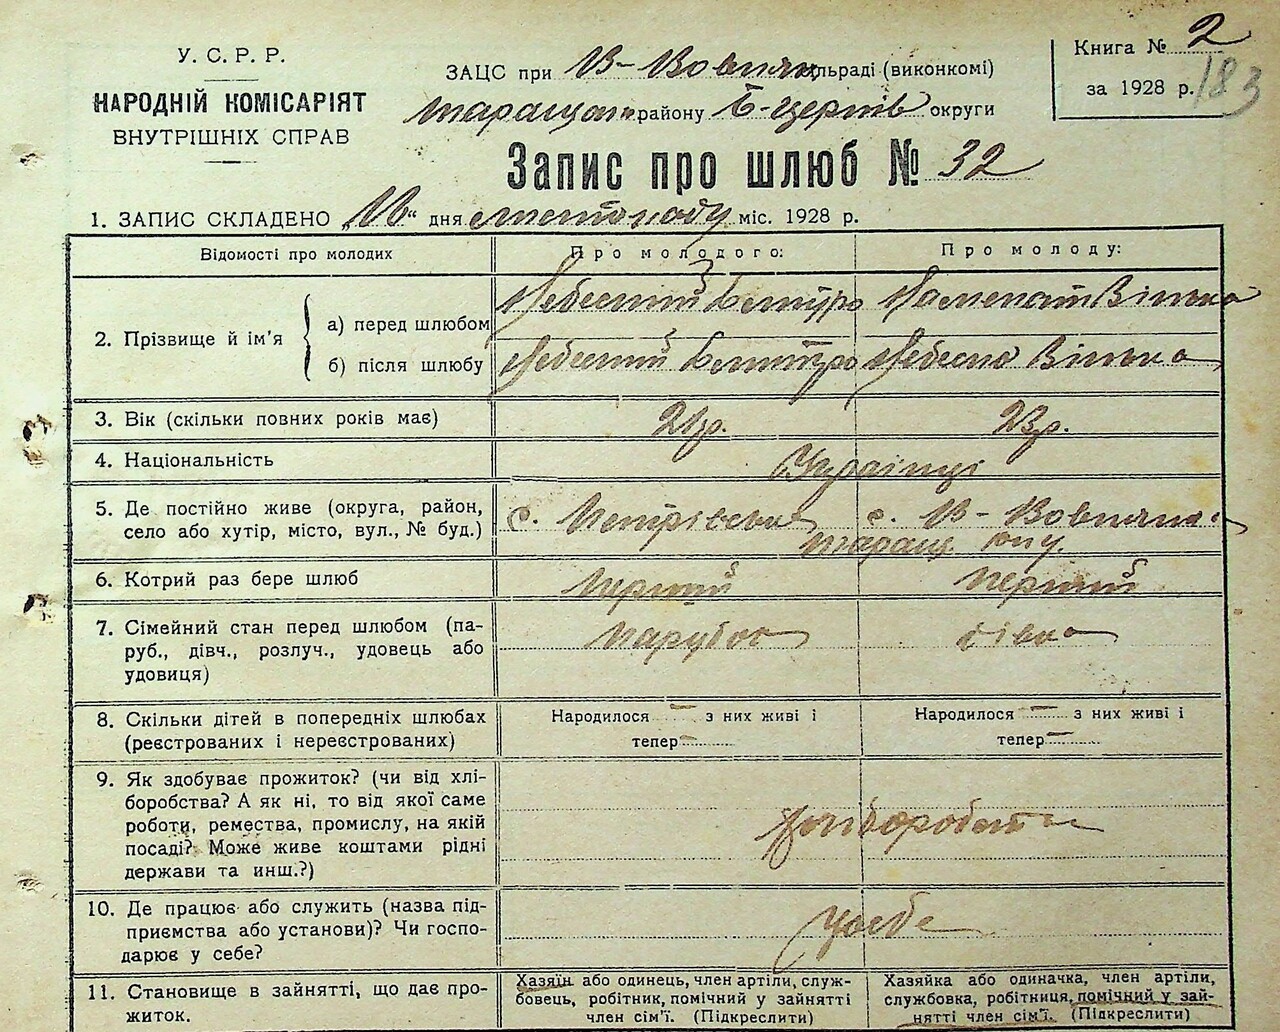 У. С. Р. Р.
НАРОДНІЙ КОМІСАРІЯТ
ВНУТРІШНІХ СПРАВ
ЗАЦС при В-Вовнян сільраді (виконкомі)
Таращан. району Б-Церків округи
Книга № 2
за 1928 р.
183
Запис про шлюб № 32
1. ЗАПИС СКЛАДЕНО дня листопаду міс. 1928 р.
Відомості про молодих
Про молодого:
Про молоду:
2. Прізвище й ім'я
а) перед шлюбом
Небесний Вільха
б) після шлюбу
Небесний Небесна Вільха
3. Вік (скільки повних років має)
21 р.
23 р.
4. Національність
Українці
5. Де постійно живе (округа, район,
село або хутір, місто, вул., № буд.)
с. Петрівська
с. В-Вовнянка
таращ.
6. Котрий раз бере шлюб
перший
перший
7. Сімейний стан перед шлюбом (па-
руб., дівч., розлуч., удовець або
удовиця)
парубок
дівка
8. Скільки дітей в попередніх шлюбах
(реєстрованих і нереєстрованих)
Народилося — з них живі і
тепер —
Народилося — з них живі і
тепер —
9. Як здобуває прожиток? (чи від хлі-
боробства? А як ні, то від якої саме
роботи, ремества, промислу, на якій
посаді? Може живе коштами рідні
держави та инш.?)
10. Де працює або служить (назва під-
приємства або установи)? Чи госпо-
дарює у себе?
у себе
11. Становище в зайнятті, що дає про-
житок.
Хазяїн або одинець, член артіли, служ-
бовець, робітник, помічний у зайнятті
член сім'ї. (Підкреслити)
Хазяйка або одиначка, член артіли,
службовка, робітниця, помічний у зай-
нятті член сім'ї. (Підкреслити)